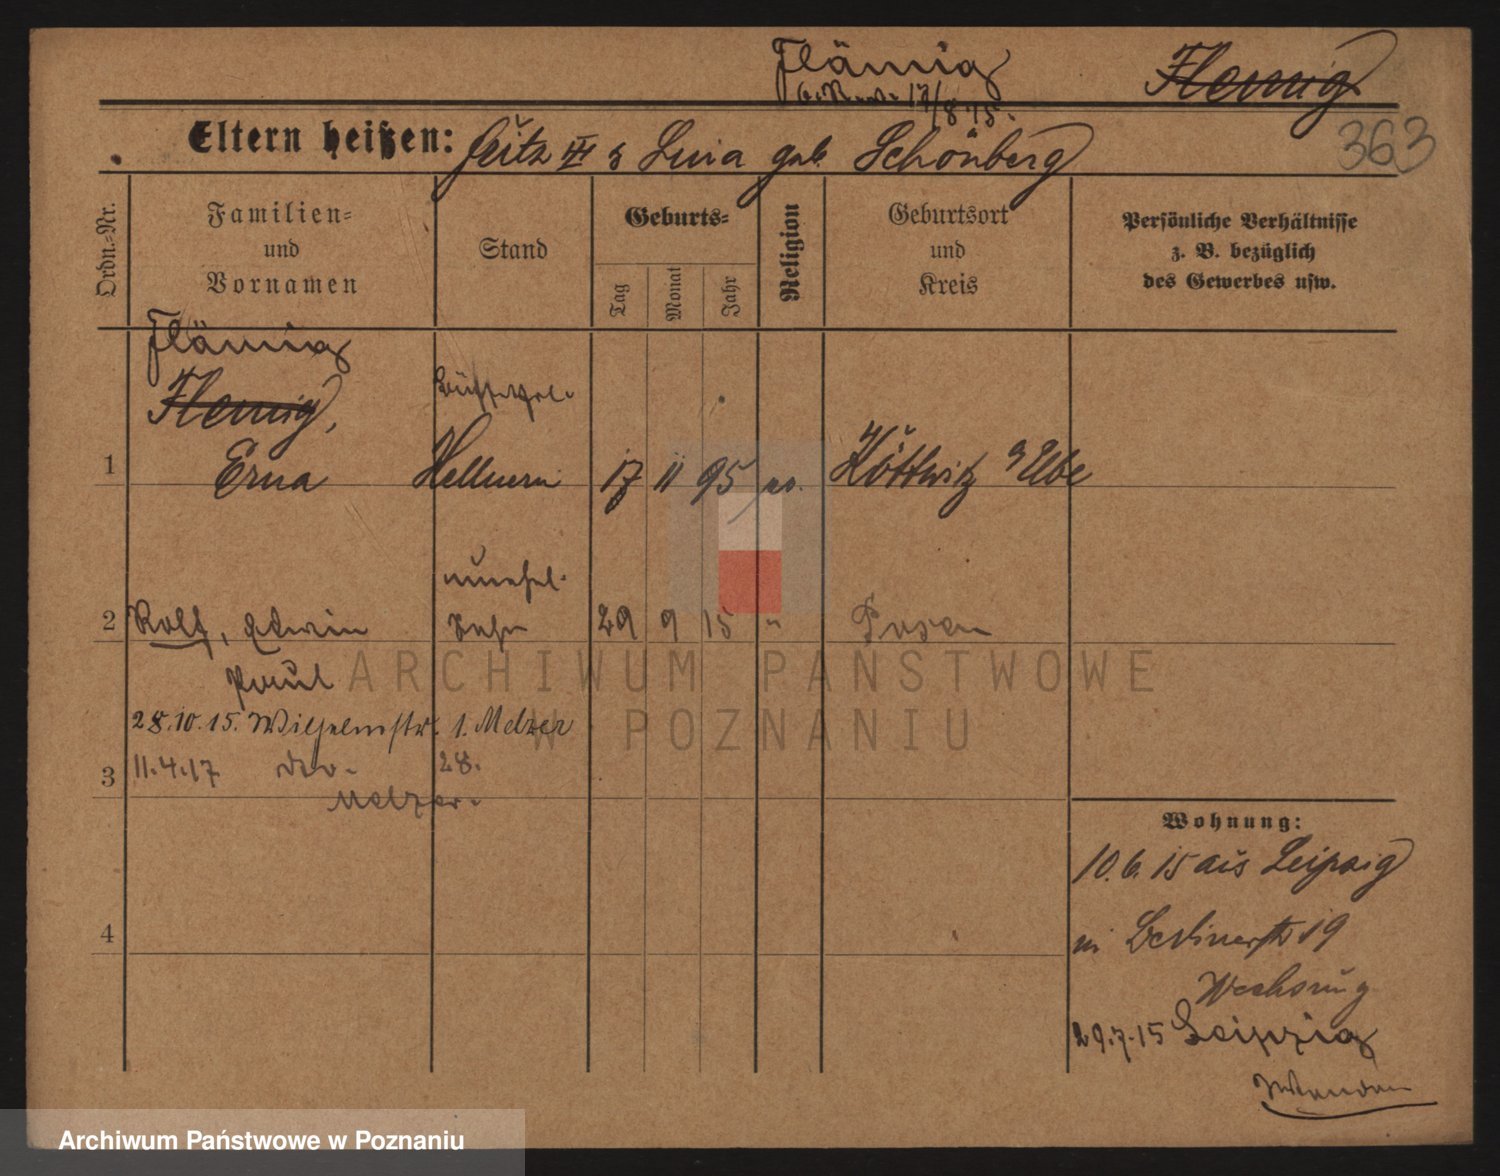 Flämig
Flemig
17/8 15.
363
Eltern heißen: Fritz III & Luia geb. Schönberg
Ordn.=Nr.
Familien=
und
Vornamen
Stand
Geburts=
Tag
Monat
Jahr
Religion
Geburtsort
und
Kreis
Persönliche Verhältnisse
z. B. bezüglich
des Gewerbes usw.
Flämig
Flemig,
1 Erna Kellnerin 17 11 95 ev. Köttwitz a Elbe
unehel.
2 Rolf, Edwin Sohn 29 9 15 " Posen
Paul
28.10.15. Wilhelmstr. 1. Melzer
3 11.4.17 28.
Melzer.
4
Wohnung:
10.6.15 aus Leipzig
in Berlinerstr 19
29.7.15 Leipzig
ARCHIWUM PAŃSTWOWE
W POZNANIU
Archiwum Państwowe w Poznaniu